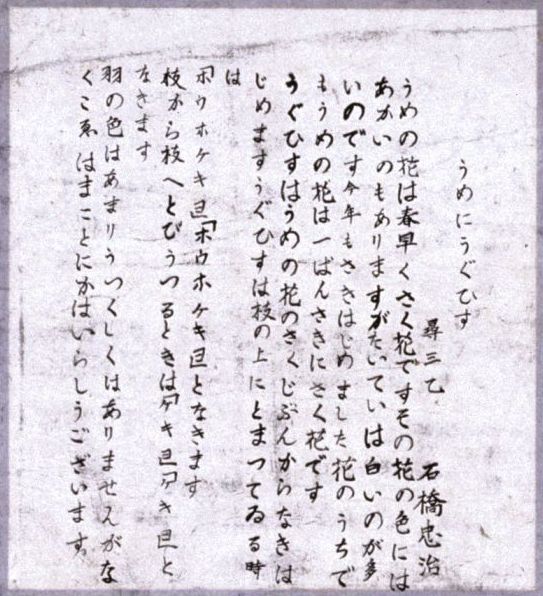 うめにうぐひす
尋三乙　石橋忠治
うめの花は春早くさく花ですその花の色には
あかいのもありますがたいていは白いのが多
いのです今年もさきはじめました花のうちで
もうめの花は一ばんさきにさく花です
うぐひすはうめの花のさくじぶんからなきは
じめますうぐひすは枝の上にとまつてゐる時
は
「ホウホケキヨ「ホウホケキヨとなきます
枝から枝へとびうつるときは「ケキヨ「ケキヨと
なきます
羽の色はあまりうつくしくはありませんがな
くこゑはまことにかはいらしうございます。